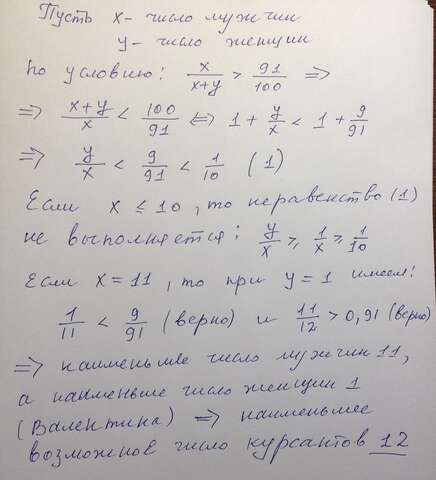 Пусть x - число мужчин
y - число женщин
По условию: x/(x+y) > 91/100 ⇒
⇒ (x+y)/x < 100/91 ⇔ 1 + y/x < 1 + 9/91
⇒ y/x < 9/91 < 1/10 (1)
Если x ≤ 10, то неравенство (1)
не выполняется: y/x ≥ 1/x ≥ 1/10
Если x = 11, то при y = 1 имеем:
1/11 < 9/91 (верно) и 11/12 > 0,91 (верно)
⇒ наименьшее число мужчин 11,
а наименьшее число женщин 1
(Валентина) ⇒ наименьшее
возможное число курсантов 12